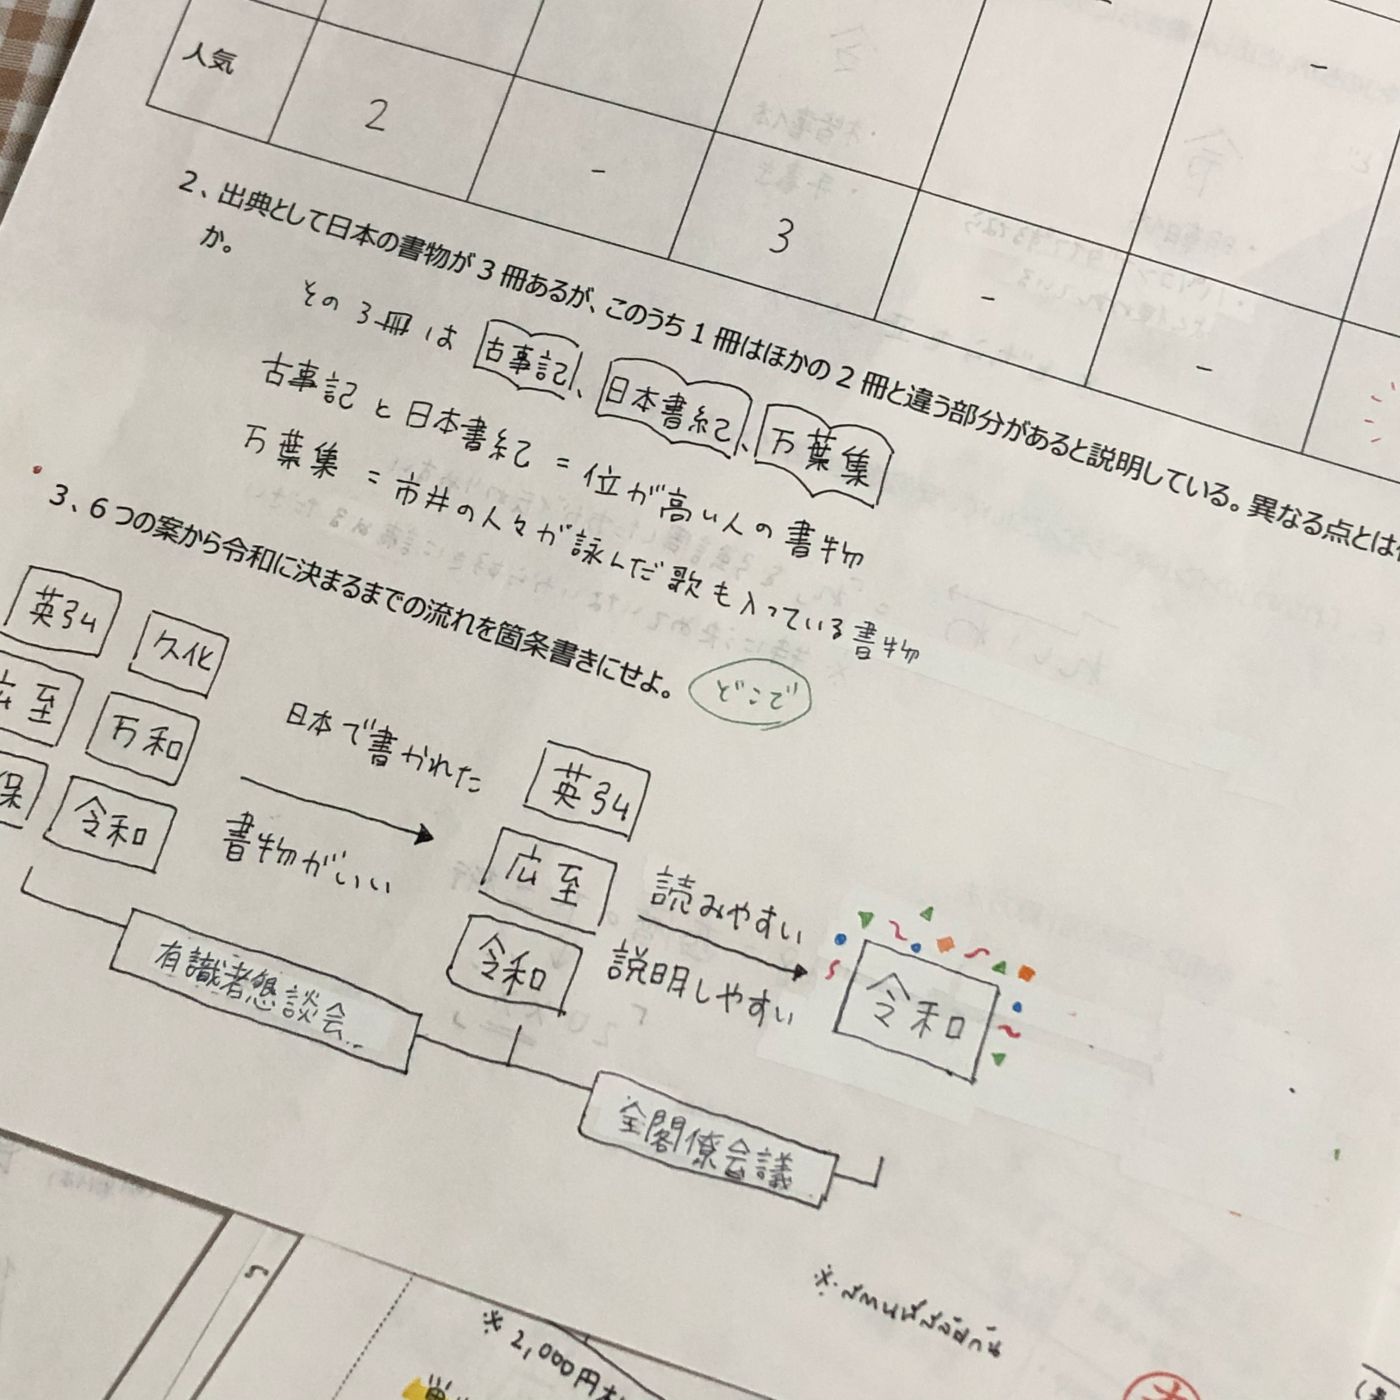 人気
2
-
3
-
-
-
2、出典として日本の書物が3冊あるが、このうち1冊はほかの2冊と違う部分があると説明している。異なる点とは
か。
その3冊は 古事記、日本書紀、万葉集
古事記と日本書紀=位が高い人の書物
万葉集=市井の人々が詠んだ歌も入っている書物
3、6つの案から令和に決まるまでの流れを箇条書きにせよ。 どこで
英弘
久化
広至
万和
保
令和
日本で書かれた
書物がいい
英弘
広至
令和
読みやすい
説明しやすい
令和
有識者懇談会
全閣僚会議
※2,000円